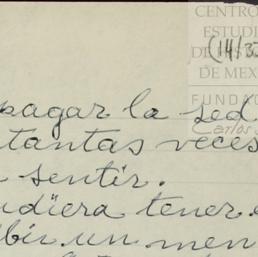 CENTRO
ESTUDI
DE MEX
FUNDAC
Carlos
(14/32
pagar la sed
tantas veces
sentir.
udiera tener
bir un men